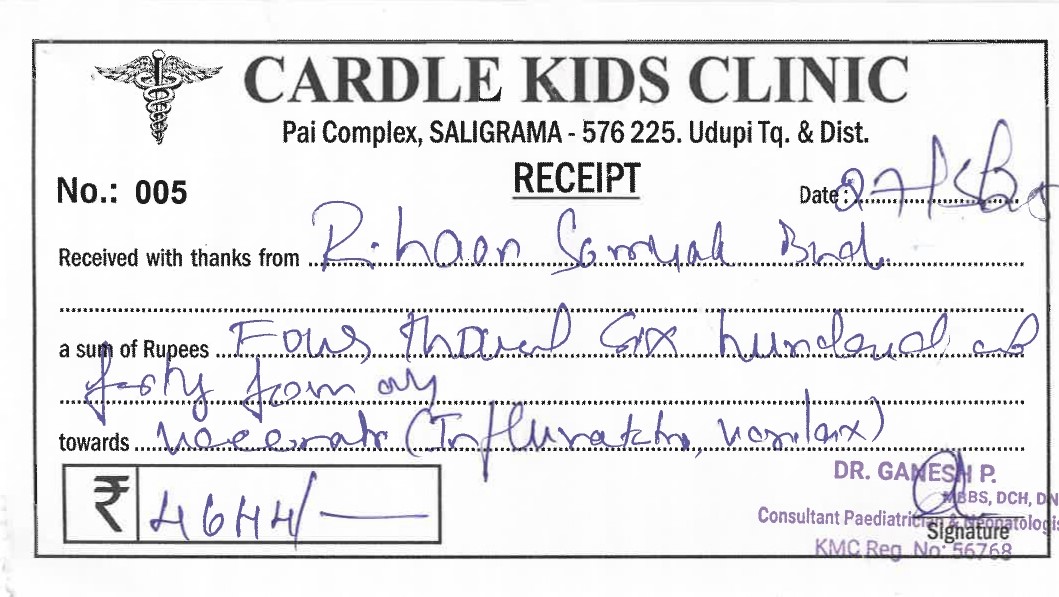 CARDLE KIDS CLINIC
Pai Complex, SALIGRAMA - 576 225. Udupi Tq. & Dist.
RECEIPT
No.: 005
Date: 27/5/20
Received with thanks from Rihaan Samyak
a sum of Rupees Four thousand Six hundred and
forty four only
towards (Influvac, varilrix)
₹ 4644/-
DR. GANESH P.
MBBS, DCH, DN
Consultant Paediatrician & Neonatologis
Signature
KMC Reg. No: 56768